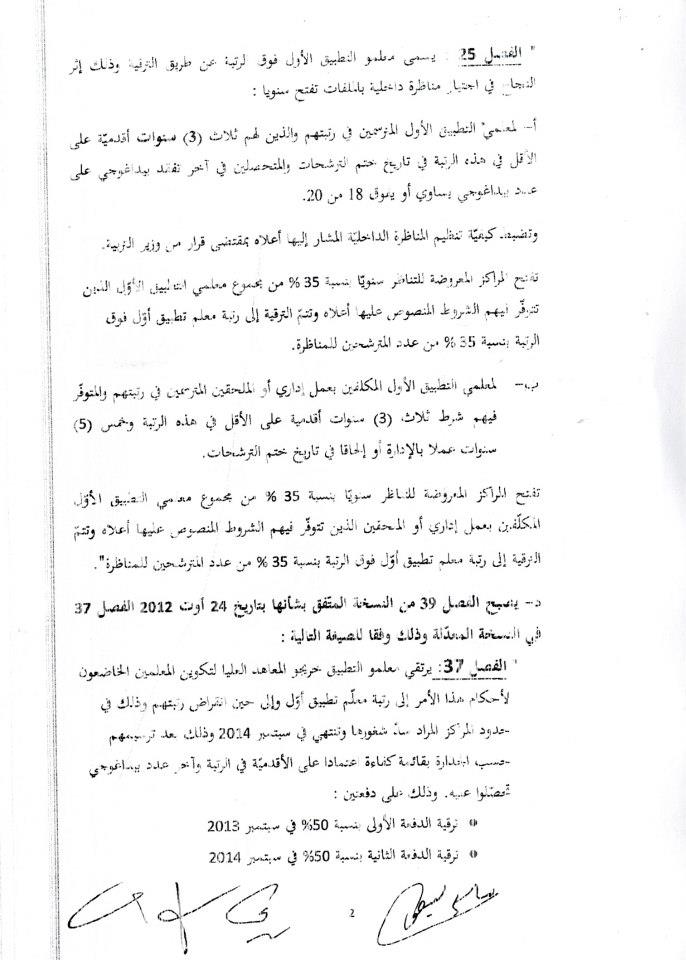 " الفصل 25 : يسمى معلمو التطبيق الأول فوق الرتبة عن طريق الترقية وذلك إثر
النجاح في اجتياز مناظرة داخلية بالملفات تفتح سنويا :
أ- لمعلمي التطبيق الأول المترسمين في رتبتهم والذين لهم ثلاث (3) سنوات أقدميّة على
الأقل في هذه الرتبة في تاريخ ختم الترشحات والمتحصلين في آخر تفقد بيداغوجي على
عدد بيداغوجي يساوي أو يفوق 18 من 20.
وتضبط كيفيّة تنظيم المناظرة الداخليّة المشار إليها أعلاه بمقتضى قرار من وزير التربية.
تفتح المراكز المعروضة للتناظر سنويّا بنسبة 35 % من مجموع معلمي التطبيق الأوّل الذين
تتوفّر فيهم الشروط المنصوص عليها أعلاه وتتمّ الترقية إلى رتبة معلم تطبيق أوّل فوق
الرتبة بنسبة 35 % من عدد المترشحين للمناظرة.
ب- لمعلمي التطبيق الأول المكلفين بعمل إداري أو الملحقين المترسمين في رتبتهم والمتوفّر
فيهم شرط ثلاث (3) سنوات أقدمية على الأقل في هذه الرتبة وخمس (5)
سنوات عملا بالإدارة أو إلحاقا في تاريخ ختم الترشحات.
تفتح المراكز المعروضة للتناظر سنويّا بنسبة 35 % من مجموع معلمي التطبيق الأوّل
المكلّفين بعمل إداري أو الملحقين الذين تتوفّر فيهم الشروط المنصوص عليها أعلاه وتتمّ
الترقية إلى رتبة معلم تطبيق أوّل فوق الرتبة بنسبة 35 % من عدد المترشحين للمناظرة".
د- يصبح الفصل 39 من النسخة المتّفق بشأنها بتاريخ 24 أوت 2012 الفصل 37
في النسخة المعدّلة وذلك وفقا للصيغة التالية :
" الفصل 37: يرتقي معلمو التطبيق خريجو المعاهد العليا لتكوين المعلمين الخاضعون
لأحكام هذا الأمر إلى رتبة معلّم تطبيق أوّل وإلى حين انقراض رتبتهم وذلك في
حدود المراكز المراد سدّ شغورها وتنتهي في سبتمبر 2014 وذلك بعد ترسيمهم
حسب الجدارة بقائمة كفاءة اعتمادا على الأقدميّة في الرتبة وآخر عدد بيداغوجي
تحصّلوا عليه. وذلك على دفعتين :
• ترقية الدفعة الأولى بنسبة 50% في سبتمبر 2013
• ترقية الدفعة الثانية بنسبة 50% في سبتمبر 2014
2